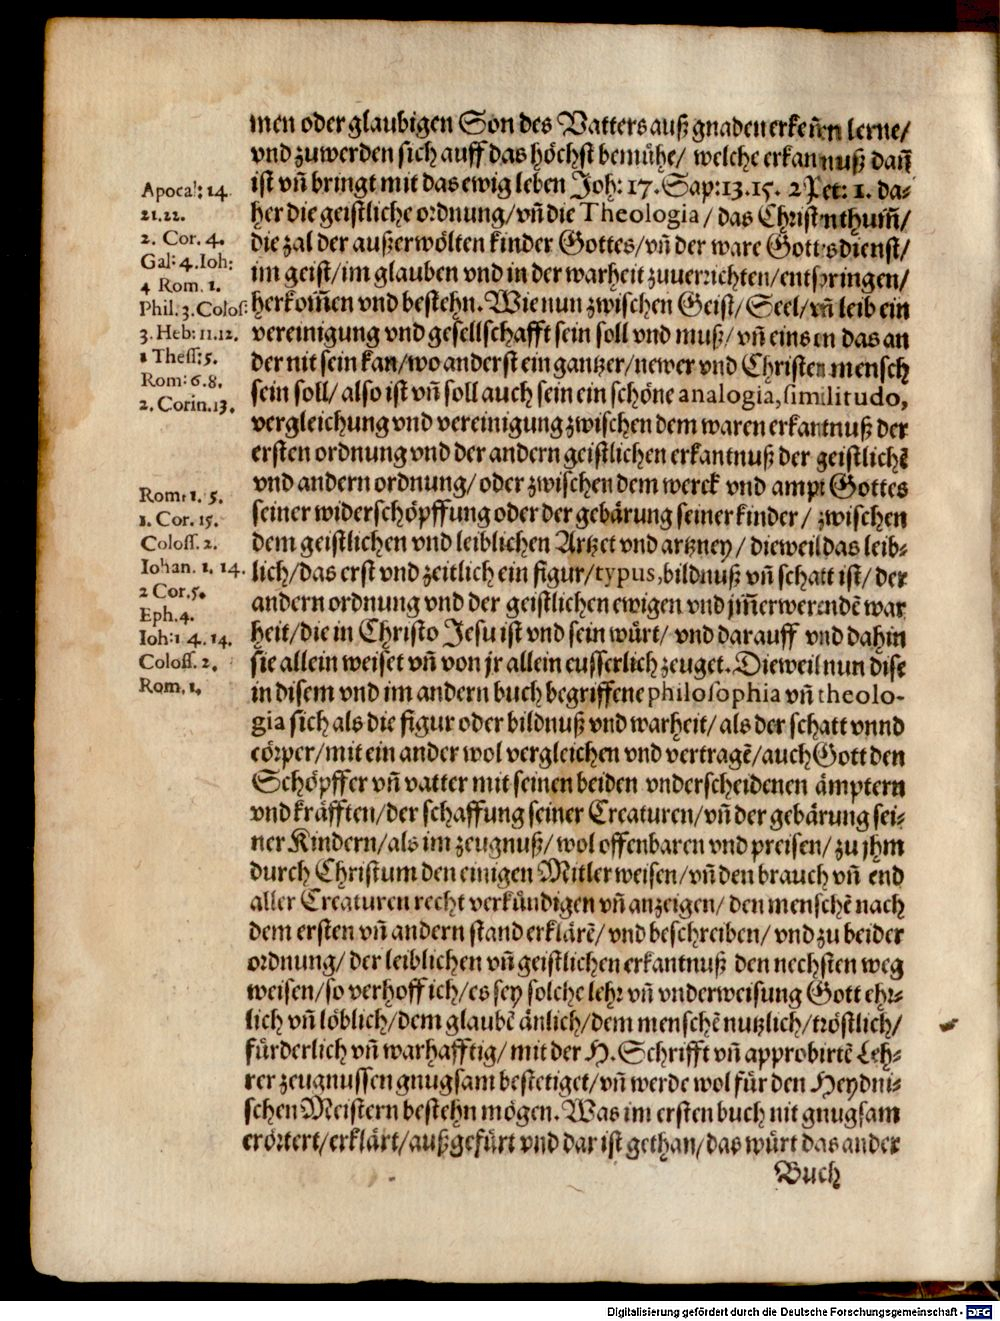 men oder glaubigen Son des Vatters auß gnaden erkeñen lerne/
vnd zuwerden sich auff das höchst bemühe/ welche erkannuß dañ
ist vñ bringt mit das ewig leben Joh: 17. Sap:13.15. 2 Pet: 1. da-
her die geistliche ordnung/vñ die Theologia/ das Christnthum̃/
die zal der außerwölten kinder Gottes/vñ der ware Gottsdienst/
im geist/im glauben vnd in der warheit zuverrichten/entspringen/
herkom̃en vnd bestehn. Wie nun zwischen Geist/ Seel/ vñ leib ein
vereinigung vnd gesellschafft sein soll vnd muß/ vñ eins on das an
der nit sein kan/wo anderst ein gantzer/newer vnd Christen mensch
sein soll/ also ist vñ soll auch sein ein schöne analogia, similitudo,
vergleichung vnd vereinigung zwischen dem waren erkantnuß der
ersten ordnung vnd der andern geistlichen erkantnuß der geistlichẽ
vnd andern ordnung/ oder zwischen dem werck vnd ampt Gottes
seiner widerschöpffung oder der gebärung seiner kinder/ zwischen
dem geistlichen vnd leiblichen Artzet vnd artzney/ dieweil das leib-
lich/das erst vnd zeitlich ein figur/typus,bildnuß vñ schatt ist/ der
andern ordnung vnd der geistlichen ewigen vnd jm̃erwerendẽ war
heit/die in Christo Jesu ist vnd sein würt/ vnd darauff vnd dahin
sie allein weiset vñ von jr allein eusserlich zeuget. Dieweil nun dise
in disem vnd im andern buch begriffene philosophia vñ theolo-
gia sich als die figur oder bildnuß vnd warheit/ als der schatt vnnd
cörper/mit ein ander wol vergleichen vnd vertragẽ/auch Gott den
Schöpffer vñ vatter mit seinen beiden vnderscheidenen ämptern
vnd kräfften/der schaffung seiner Creaturen/vñ der gebärung sei-
ner Kindern/als im zeugnuß/ wol offenbaren vnd preisen/ zu jhm
durch Christum den einigen Mitler weisen/vñ den brauch vñ end
aller Creaturen recht verkündigen vñ anzeigen/ den menschẽ nach
dem ersten vñ andern stand erklärẽ/ vnd beschreiben/ vnd zu beider
ordnung/ der leiblichen vñ geistlichen erkantnuß den nechsten weg
weisen/so verhoff ich/es sey solche lehr vñ vnderweisung Gott ehr-
lich vñ löblich/dem glaubẽ änlich/dem menschẽ nutzlich/tröstlich/
fürderlich vñ warhafftig/ mit der H. Schrifft vñ approbirtẽ Leh-
rer zeugnussen gnugsam bestetiget/vñ werde wol für den Heydni-
schen Meistern bestehn mögen. Was im ersten buch nit gnugsam
erörtert/erklärt/außgefürt vnd dar ist gethan/das würt das ander
Buch
Apocal: 14.
21.22.
2. Cor. 4.
Gal: 4. Ioh:
4 Rom. 1.
Phil. 3. Colos:
3. Heb: 11.12.
1 Thess: 5.
Rom: 6.8.
2. Corin. 13.
Rom: 1. 5.
1. Cor. 15.
Coloss. 2.
Iohan. 1. 14.
2 Cor. 5.
Eph. 4.
Ioh: 1 4. 14.
Coloss. 2.
Rom. 1.
Digitalisierung gefördert durch die Deutsche Forschungsgemeinschaft - DFG